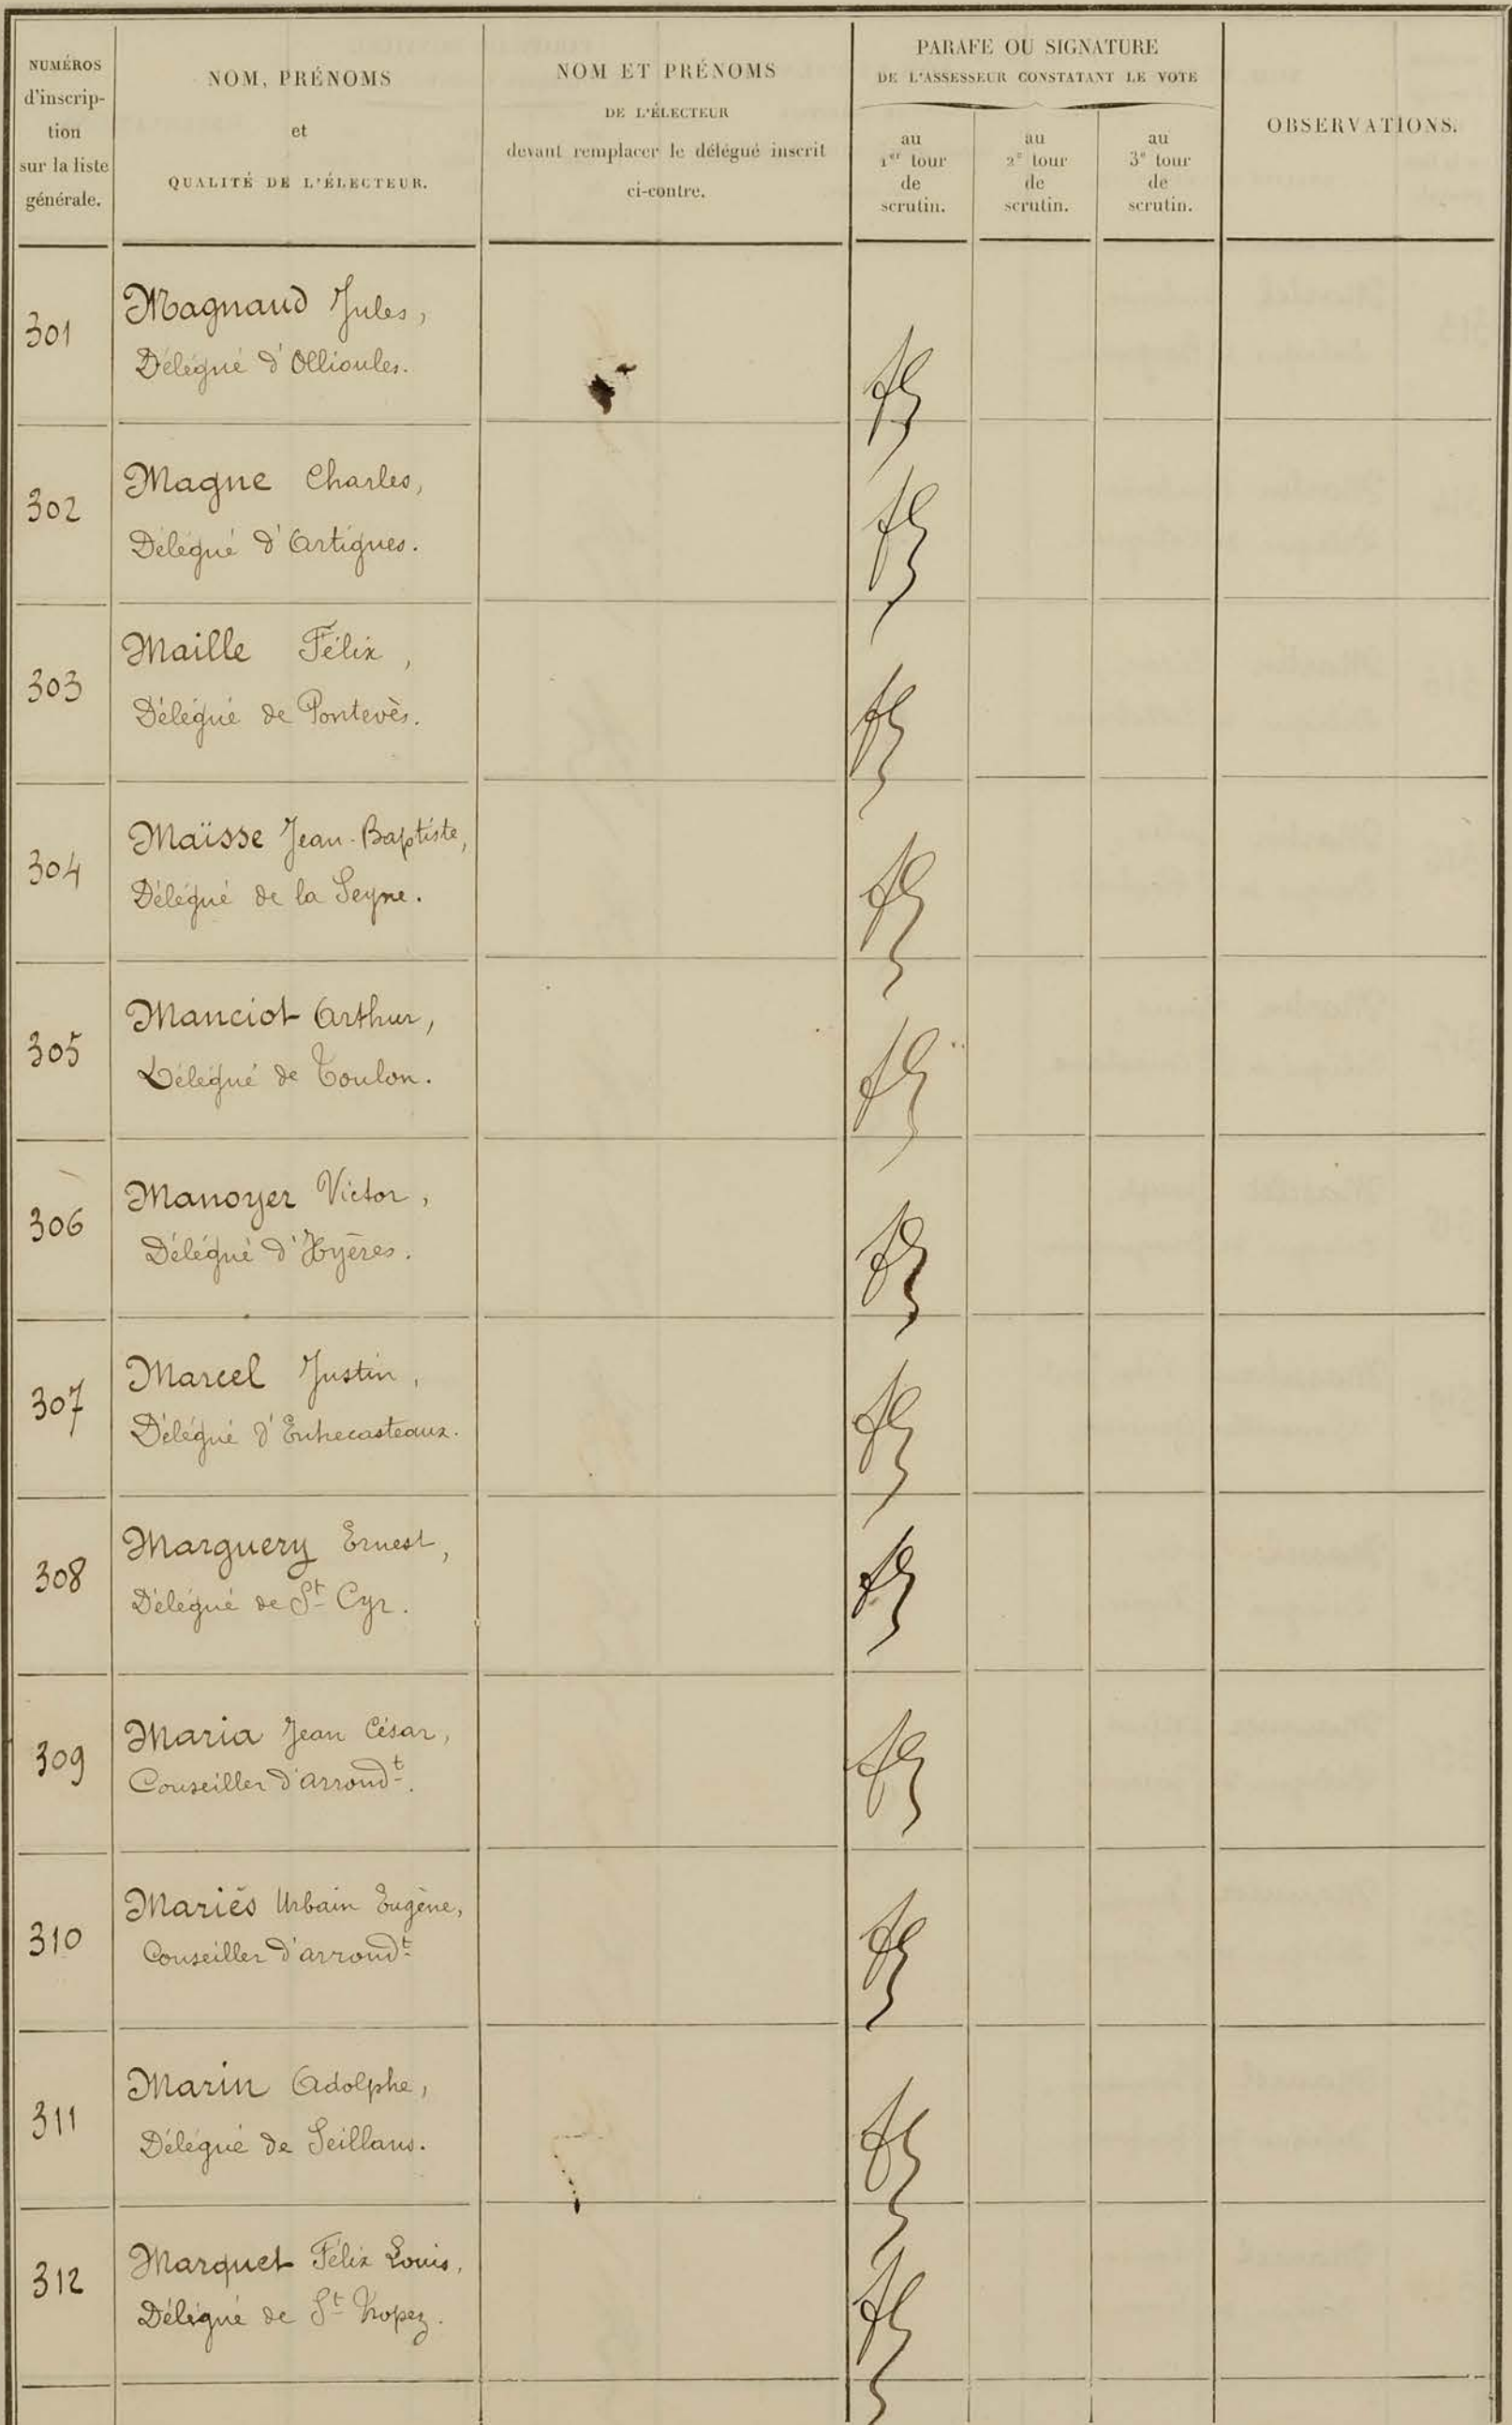 NUMÉROS
d'inscrip-
tion
sur la liste
générale.
NOM, PRÉNOMS
et
QUALITÉ DE L'ÉLECTEUR.
NOM ET PRÉNOMS
DE L'ÉLECTEUR
devant remplacer le délégué inscrit
ci-contre.
PARAFE OU SIGNATURE
DE L'ASSESSEUR CONSTATANT LE VOTE
au
1er tour
de
scrutin.
au
2e tour
de
scrutin.
au
3e tour
de
scrutin.
OBSERVATIONS.
301
Magnaud Jules,
Délégué d'Ollioules.
302
Magne Charles,
Délégué d'Artigues.
303
Maille Félix,
Délégué de Pontevès.
304
Maïsse Jean-Baptiste,
Délégué de la Seyne.
305
Manciot Arthur,
Délégué de Toulon.
306
Manoyer Victor,
Délégué d'Hyères.
307
Marcel Justin,
Délégué d'Entrecasteaux.
308
Marguery Ernest,
Délégué de St Cyr.
309
Maria Jean César,
Conseiller d'arrondt.
310
Mariés Urbain Eugène,
Conseiller d'arrondt
311
Marin Adolphe,
Délégué de Seillans.
312
Marquet Félix Louis,
Délégué de St Tropez.